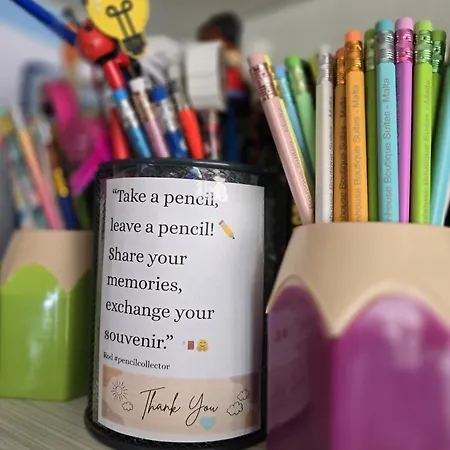 “Take a pencil,
leave a pencil!
Share your
memories,
exchange your
souvenir.”
Rod #pencilcollector
Thank You
house Boutique Suites - Malta
house Boutique Suites - Malta